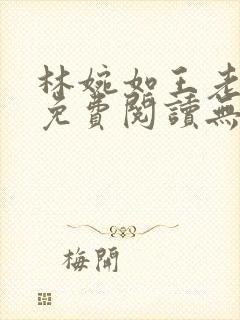 林婉如王老
免費閱讀無
梅開